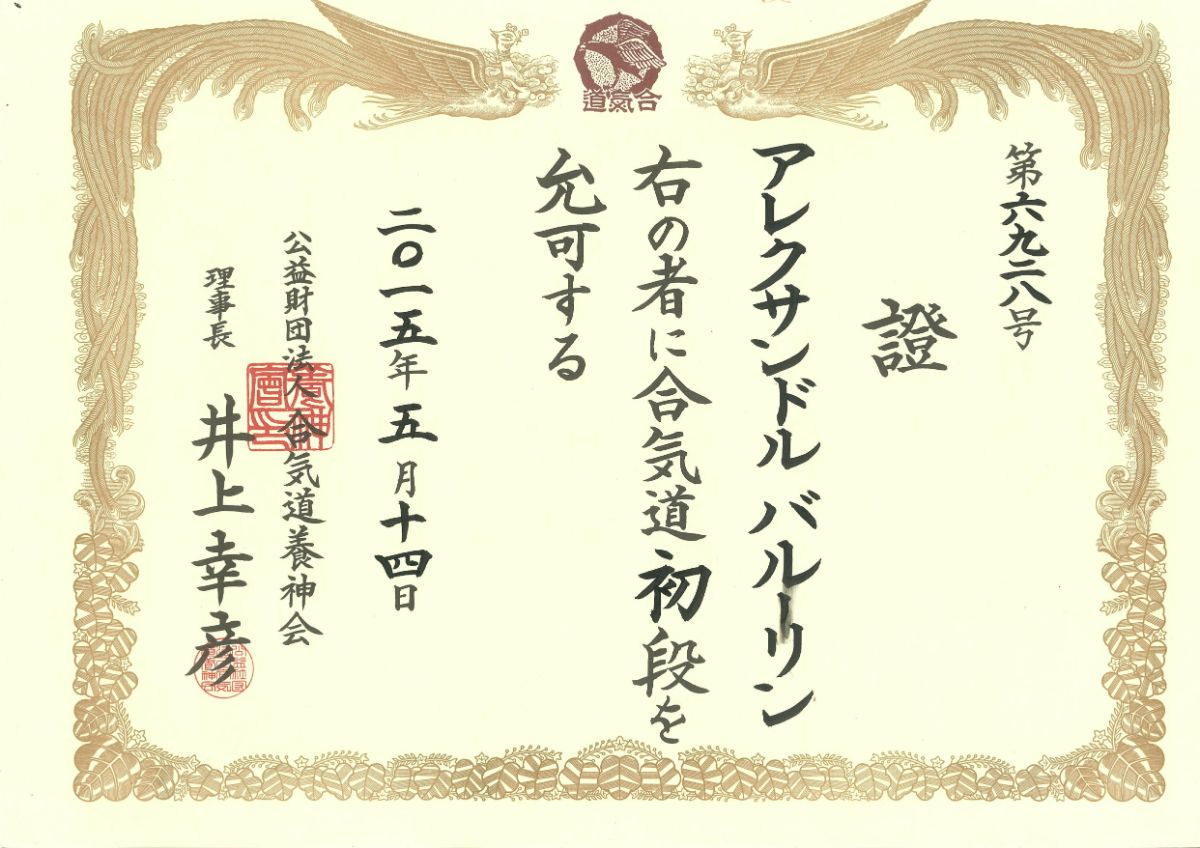 合氣道
第六九二八号
證
アレクサンドル バルーリン
右の者に合気道初段を
允可する
二〇一五年五月十四日
公益財団法人合気道養神会
理事長 井上幸彦